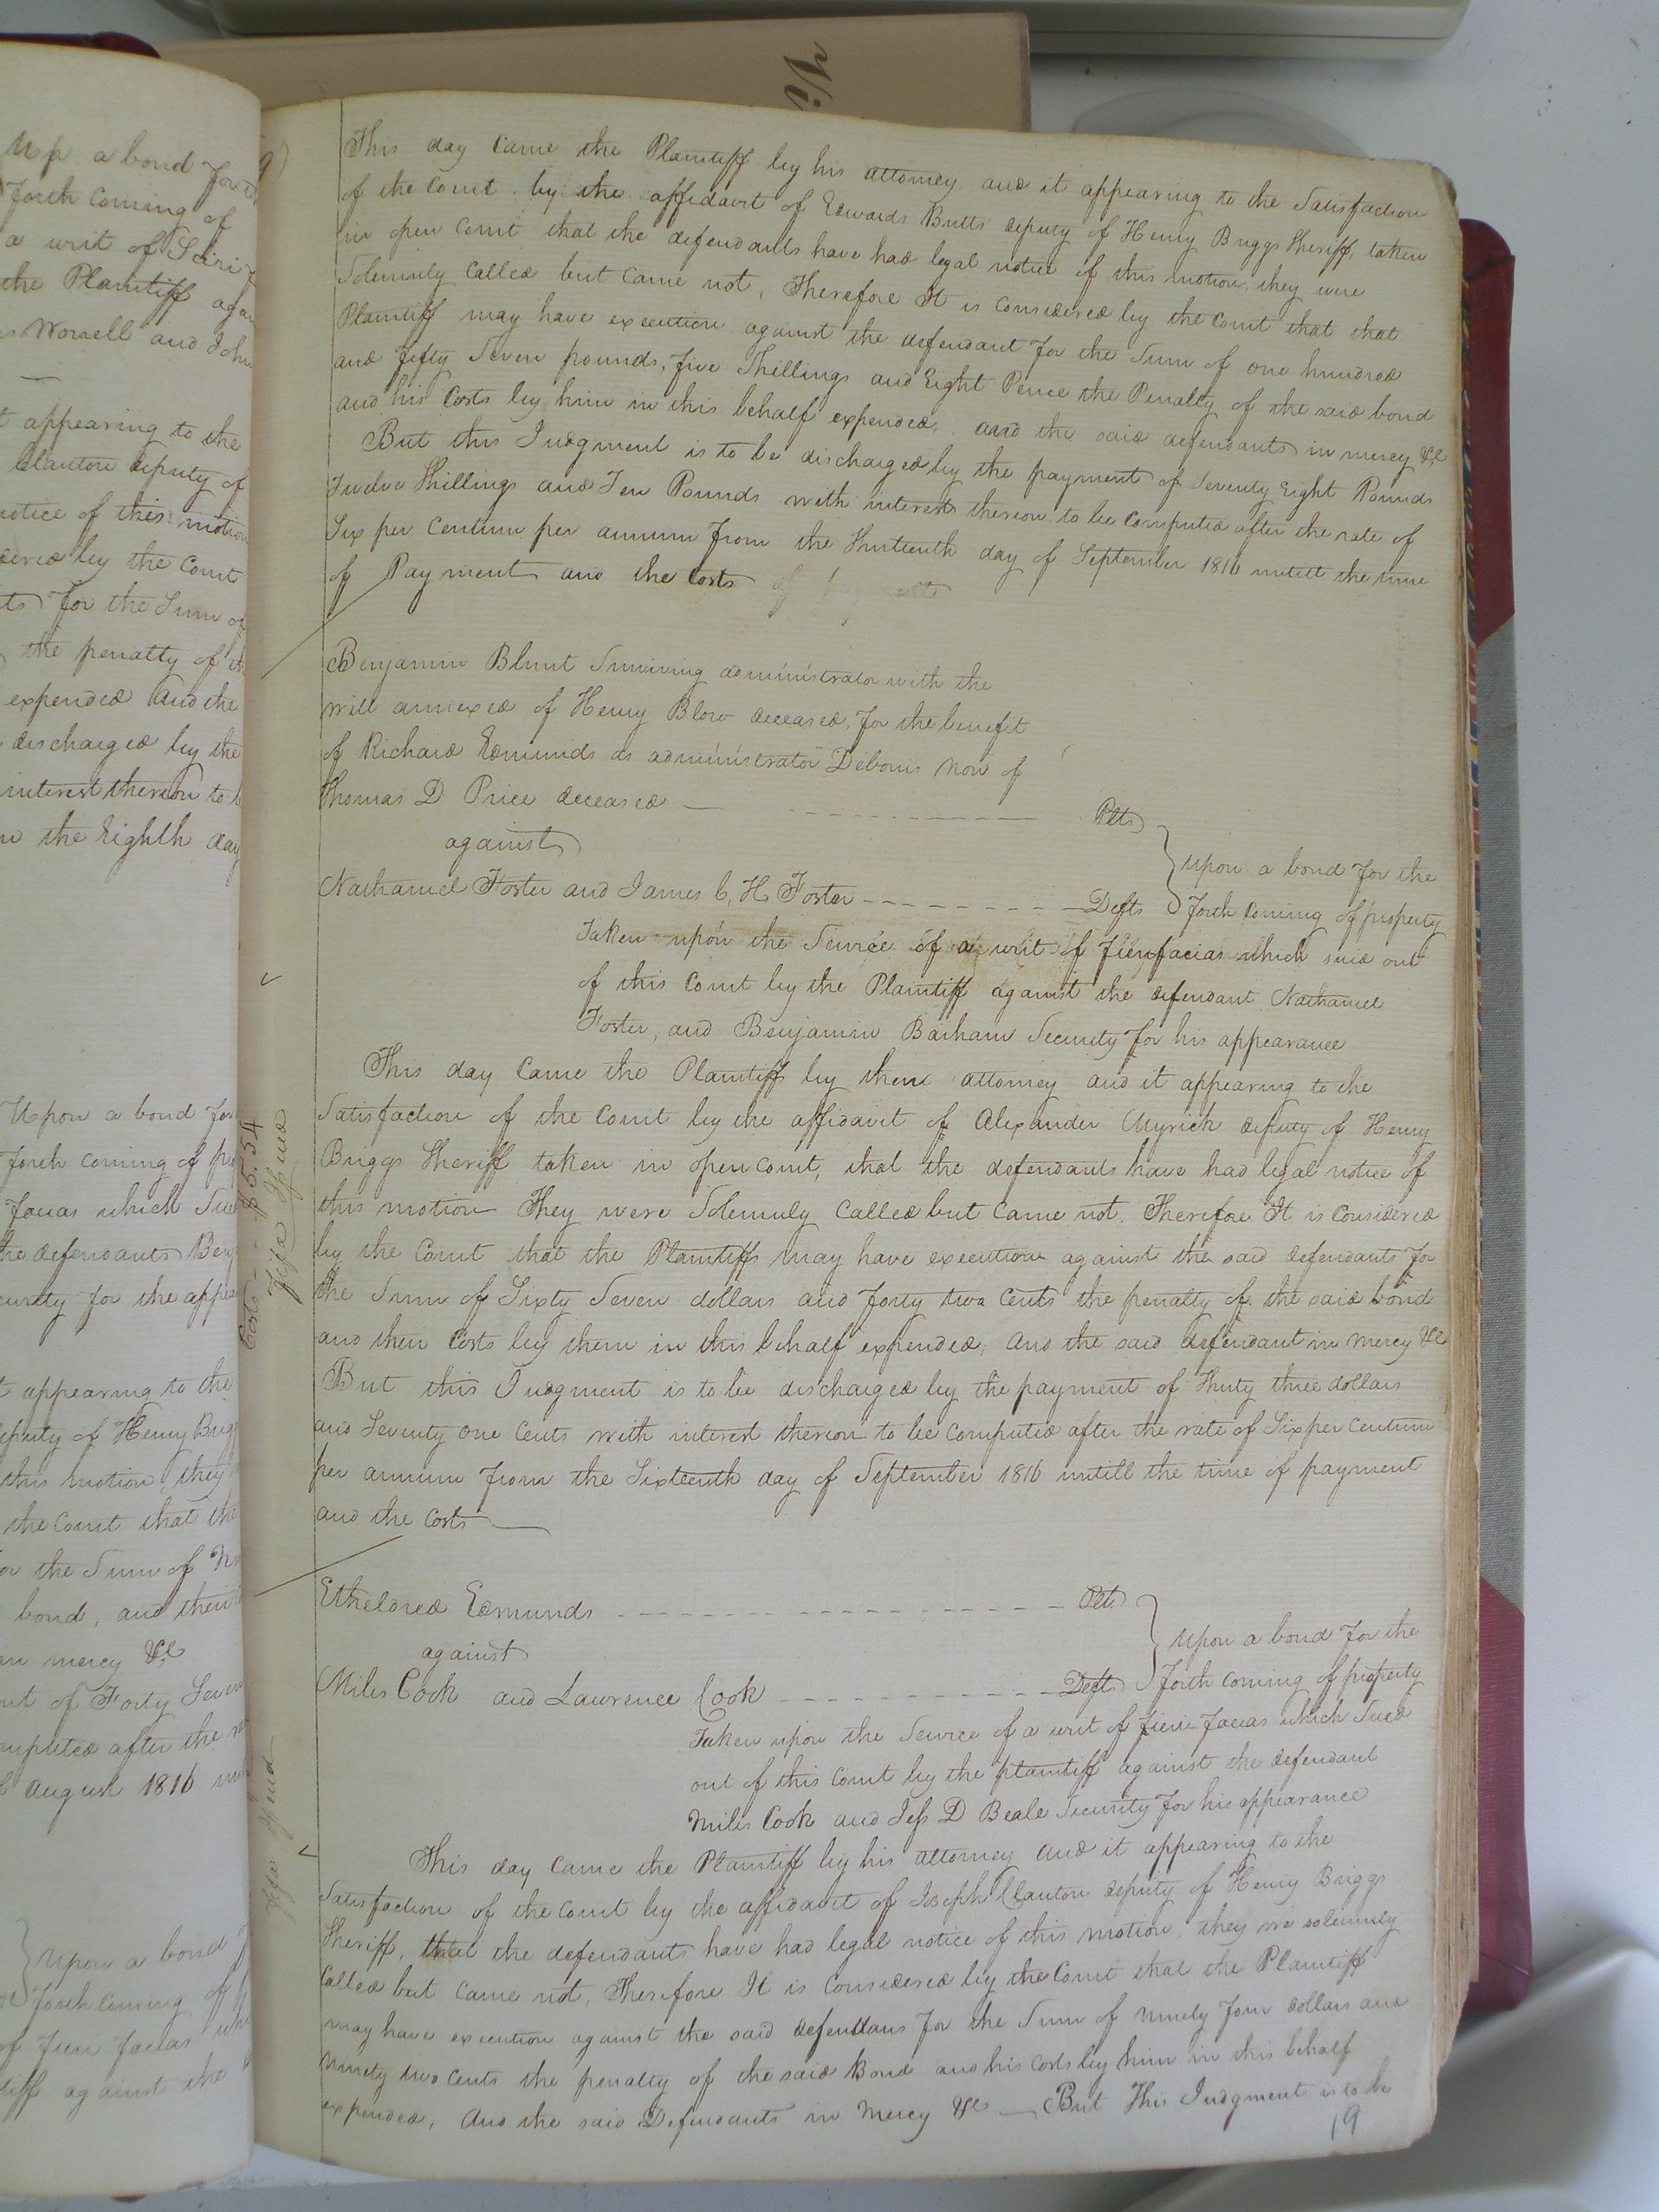 Vi
Up a bond for th
forth Coming of
a writ of Scire f
the Plaintiff aga
Worrell and John
t appearing to the
Clanton deputy of
notice of this motion
dered by the Court
ts for the Sum of
the penalty of th
expended And the
discharged by the
interest thereon to b
the Eighth day
Upon a bond for
forth coming of pr
facias which Sued
he defendants Benj
curity for the appea
t appearing to the
eputy of Henry Brigg
this motion, they
the Court that the
or the Sum of
bond, and their
in mercy &c
nt of Forty Seven
mputed after the
August 1816
Upon a bond
forth coming of
of fieri facias
tiff against the
9
This day Came the Plaintiff by his attorney and it appearing to the Satisfaction
of the Court by the affidavit of Edwards Butts deputy of Henry Briggs Sheriff, taken
in open Court that the defendants have had legal notice of this motion, they were
Solemnly Called but Came not, Therefore It is Considered by the Court that that
Plaintiff may have execution against the defendant for the Sum of one hundred
and fifty Seven pounds, five Shillings and Eight Pence the Penalty of the said bond
and his Costs by him in this behalf expended, and the said defendants in mercy &c
But this Judgment is to be discharged by the payment of Seventy Eight Pounds
Twelve Shillings and Ten Pounds with interest thereon to be computed after the rate of
Six per Centum per annum from the Thirteenth day of September 1816 untill the time
of Payment and the Costs
Benjamin Blunt Surviving administrator with the
will annexed of Henry Blow deceased, for the benefit
of Richard Edmunds as administrator Debonis Non of
Thomas D Price deceased Plts
against
Nathaniel Foster and James C. H. Foster Defts
Upon a bond for the
forth Coming of property
Taken upon the Service of a writ of fierifacias which sued out
of this Court by the Plaintiff against the defendant Nathaniel
Foster, and Benjamin Barham Security for his appearance
Costs $5.54
Fifa Issued
This day Came the Plaintiffs by their attorney and it appearing to the
Satisfaction of the Court by the affidavit of Alexander Myrick deputy of Henry
Briggs Sheriff taken in open Court, that the defendants have had legal notice of
this motion They were Solemnly Called but Came not, Therefore It is Considered
by the Court that the Plaintiffs may have execution against the said defendants for
the Sum of Sixty Seven dollars and forty two Cents the penalty of the said bond
and their Costs by them in this behalf expended, and the said defendant in mercy &c
But this Judgment is to be discharged by the payment of Thirty three dollars
and Seventy one Cents with interest thereon to be Computed after the rate of Six per Centum
per annum from the Sixteenth day of September 1816 untill the time of payment
and the Costs
Etheldred Edmunds Plt.
against
Miles Cook and Lawrence Cook Defts
Upon a bond for the
forth Coming of property
Taken upon the Service of a writ of fierie facias which Sued
out of this Court by the plaintiff against the defendant
Miles Cook and Jess D Beale Security for his appearance
This day Came the Plaintiff by his attorney and it appearing to the
Satisfaction of the Court by the affidavit of Joseph Clanton deputy of Henry Briggs
Sheriff, that the defendants have had legal notice of this motion, they we solemnly
Called but Came not, Therefore It is Considered by the Court that the Plaintiff
may have execution against the said defendans for the Sum of Ninety four dollars and
Ninety two Cents the penalty of the said Bond and his Costs by him in this behalf
expended, And the said Defendants in Mercy &c But This Judgment is to be
19